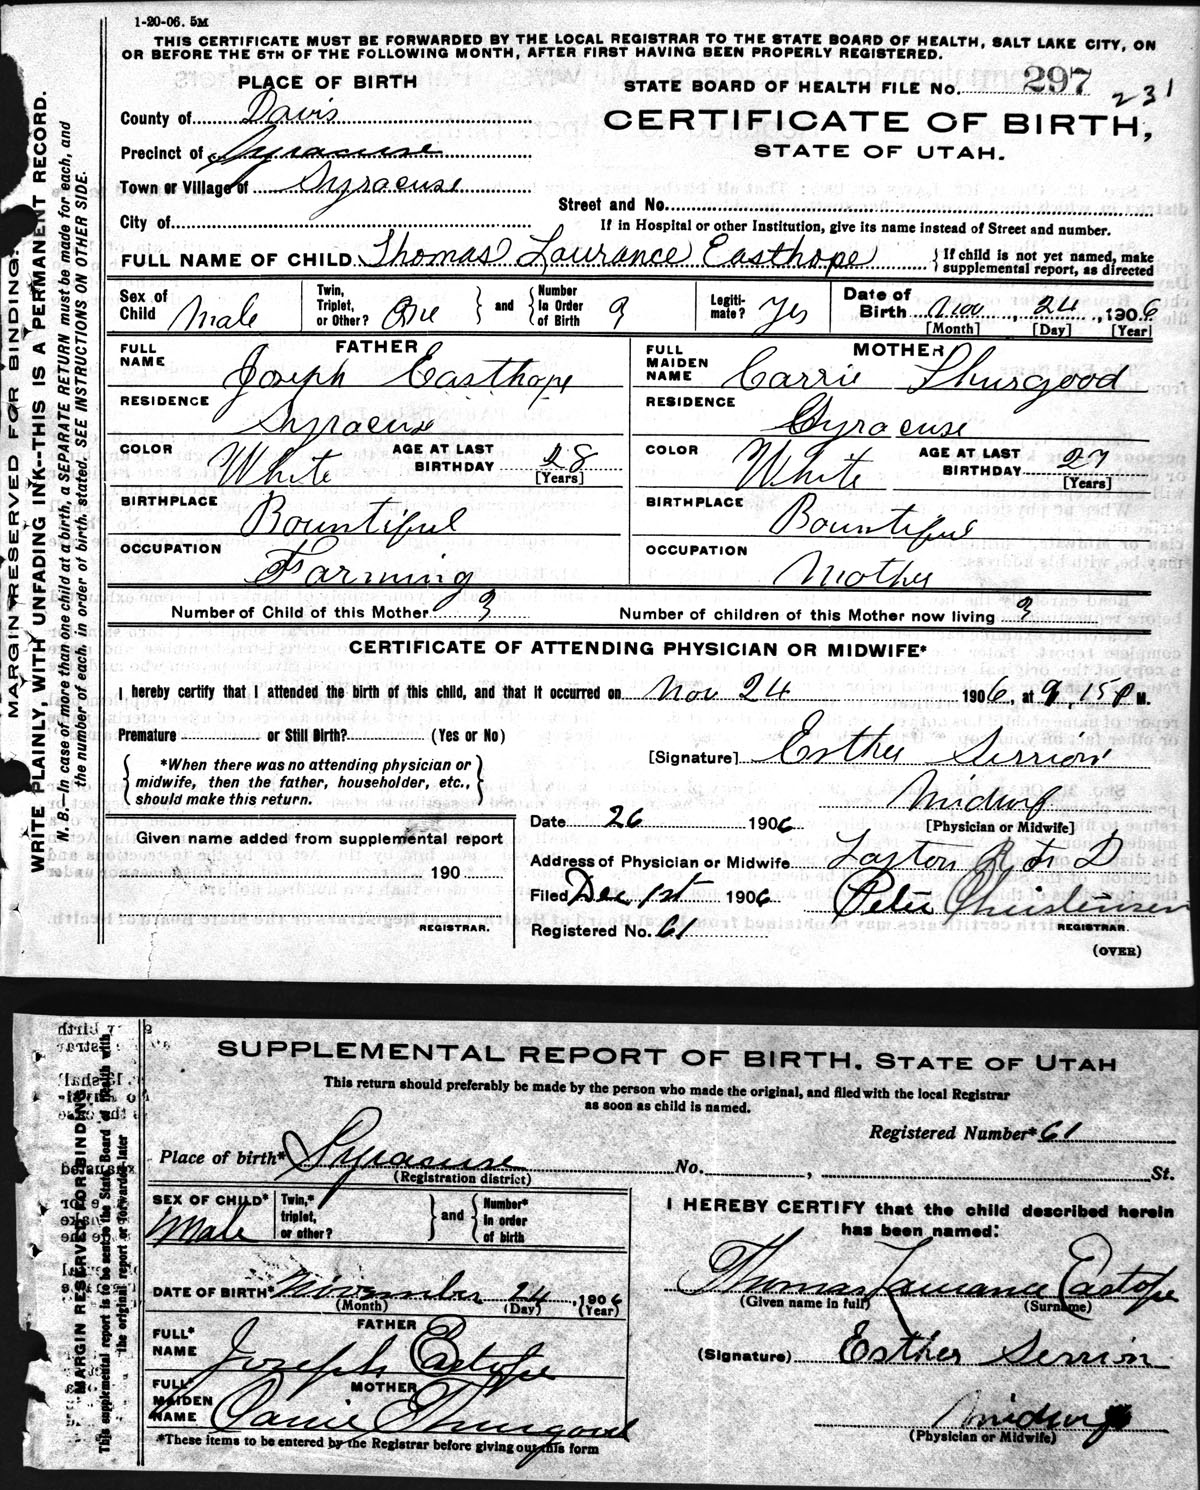 1-20-06. 5M
THIS CERTIFICATE MUST BE FORWARDED BY THE LOCAL REGISTRAR TO THE STATE BOARD OF HEALTH, SALT LAKE CITY, ON
OR BEFORE THE 5TH OF THE FOLLOWING MONTH, AFTER FIRST HAVING BEEN PROPERLY REGISTERED.
MARGIN RESERVED FOR BINDING.
WRITE PLAINLY, WITH UNFADING INK--THIS IS A PERMANENT RECORD.
N. B.—In case of more than one child at a birth, a SEPARATE RETURN must be made for each, and
the number of each, in order of birth, stated. SEE INSTRUCTIONS ON OTHER SIDE.
PLACE OF BIRTH
County of Davis
Precinct of Syracuse
Town or Village of Syracuse
City of
STATE BOARD OF HEALTH FILE No. 297 231
CERTIFICATE OF BIRTH,
STATE OF UTAH.
Street and No.
If in Hospital or other Institution, give its name instead of Street and number.
FULL NAME OF CHILD Thomas Laurance Easthope { If child is not yet named, make
supplemental report, as directed
Sex of Child Male Twin, Triplet, or Other? One } and { Number In Order of Birth 3 Legiti-mate? Yes Date of Birth Nov, 24, 1906
[Month] [Day] [Year]
FATHER
FULL NAME Joseph Easthope
RESIDENCE Syracuse
COLOR White AGE AT LAST BIRTHDAY 28
[Years]
BIRTHPLACE Bountiful
OCCUPATION Farming
MOTHER
FULL MAIDEN NAME Carrie Thurgood
RESIDENCE Syracuse
COLOR White AGE AT LAST BIRTHDAY 27
[Years]
BIRTHPLACE Bountiful
OCCUPATION Mother
Number of Child of this Mother 3 Number of children of this Mother now living 3
CERTIFICATE OF ATTENDING PHYSICIAN OR MIDWIFE*
I hereby certify that I attended the birth of this child, and that it occurred on Nov 24 1906, at 9, 15 P M.
Premature or Still Birth? (Yes or No)
{ *When there was no attending physician or
midwife, then the father, householder, etc.,
should make this return. }
[Signature] Esther Serrion
Midwif
[Physician or Midwife]
Date 26 1906
Given name added from supplemental report
190
REGISTRAR.
Address of Physician or Midwife Layton R F D
Filed Dec 1st 1906 Peter Christensen
REGISTRAR.
Registered No. 61
(OVER)
SUPPLEMENTAL REPORT OF BIRTH, STATE OF UTAH
This return should preferably be made by the person who made the original, and filed with the local Registrar
as soon as child is named.
MARGIN RESERVED FOR BINDING
This supplemental report is to be sent to the State Board of Health with
the original report or forwarded later
Registered Number* 61
Place of birth* Syracuse No. , St.
(Registration district)
SEX OF CHILD* Male Twin,* triplet, or other? } and { Number* in order of birth
DATE OF BIRTH* November 24, 1906
(Month) (Day) (Year)
FATHER
FULL* NAME Joseph Eastope
MOTHER
FULL* MAIDEN NAME Carrie Thurgood
*These items to be entered by the Registrar before giving out this form
I HEREBY CERTIFY that the child described herein
has been named:
Thomas Laurance Eastope
(Given name in full) (Surname)
(Signature) Esther Serrion
Midwif
(Physician or Midwife)